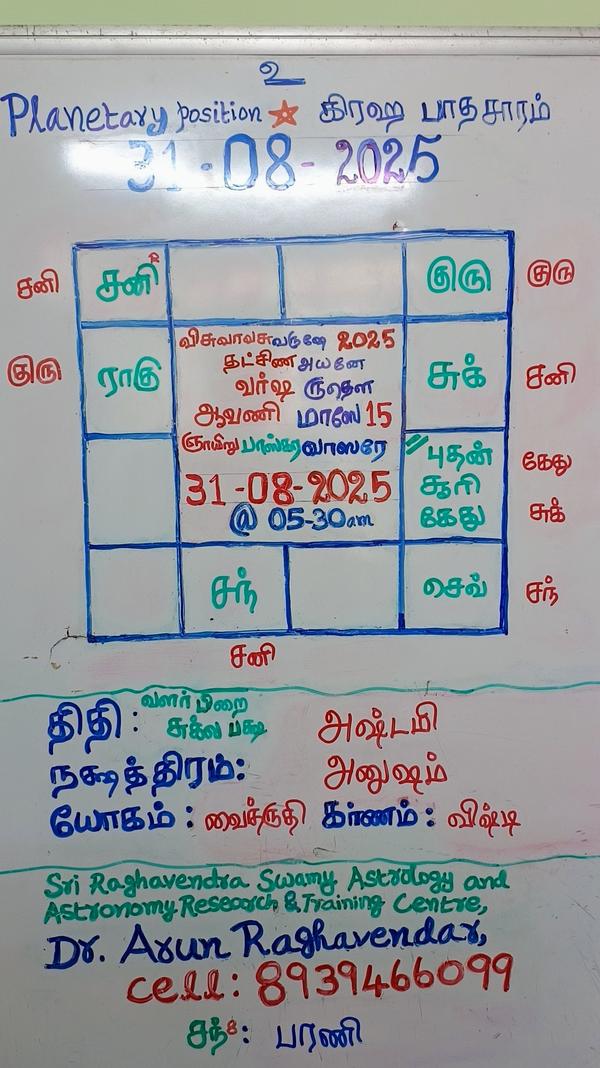 உ
Planetary position கிரஹ பாதசாரம்
31-08-2025
சனி சனி R குரு குரு
விசுவாவசுவருஷே 2025
தட்சிண அயனே
குரு ராகு வர்ஷ ருதௌ சுக் சனி
ஆவணி மாஸே 15
ஞாயிறு பாஸ்கரவாஸரே புதன் கேது
31-08-2025 சூரி
@ 05-30am கேது சுக்
சந் செவ் சந்
சனி
திதி: வளர் பிறை சுக்ல பக்ஷ அஷ்டமி
நக்ஷத்திரம்: அனுஷம்
யோகம்: வைத்ருதி கர்ணம்: விஷ்டி
Sri Raghavendra Swamy Astrology and
Astronomy Research & Training Centre,
Dr. Arun Raghavendar,
cell: 8939466099
சந்8: பரணி